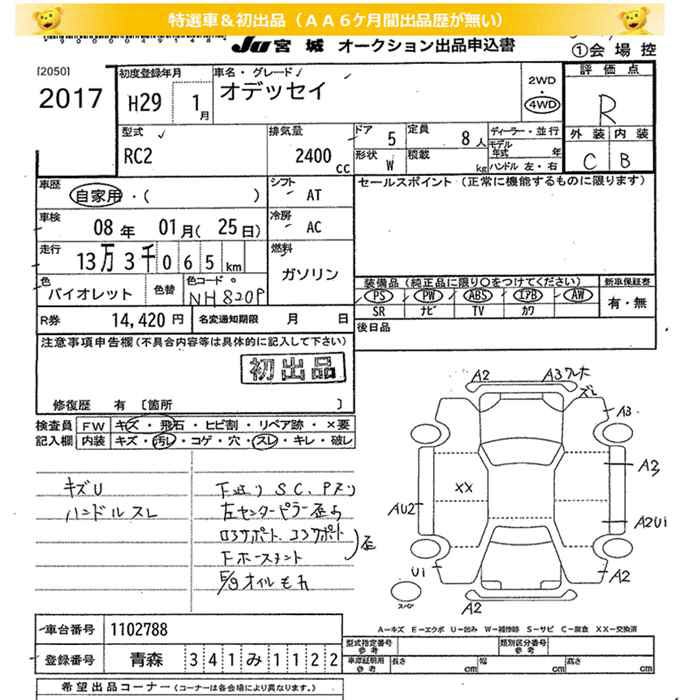 特選車＆初出品（ＡＡ６ケ月間出品歴が無い）
JU 宮城 オークション出品申込書
①会場控
[2050]
2017
初度登録年月
H29 1月
車名・グレード
オデッセイ
2WD
・
4WD
評価点
R
外装 内装
C B
型式
RC2
排気量
2400cc
ドア 5
定員 8人
形状 W
積載 kg
ディーラー・並行
モデル年式 年
ハンドル 左・右
車歴
自家用・( )
シフト
AT
セールスポイント（正常に機能するものに限ります）
車検
08年 01月(25日)
冷房
AC
走行
13万3千065km
燃料
ガソリン
色
バイオレット
色替
色コード
NH820P
装備品（純正品に限り○をつけてください）
新車保証書
PS PW ABS エアB AW
SR ナビ TV カワ
有・無
R券 14,420円
名変通知期限 月 日
後日品
注意事項申告欄(不具合内容等は具体的に記入して下さい)
初出品
修復歴 有 〔箇所 〕
検査員記入欄
FW キズ・飛石・ヒビ割・リペア跡・×要
内装 キズ・汚レ・コゲ・穴・スレ・キレ・破レ
キズU
ハンドルスレ
下廻りSC、Pヌリ
左センターピラー歪ミ
ロアサポート、コアサポート
Fホースメント
歪
E/gオイルもれ
A2
A3
ズレ
A3
A3
XX
AU2
A2U1
U1
A2
A2
スペア
A－キズ E－エクボ U－凹み W－補修跡 S－サビ C－腐食 XX－交換済
車台番号 1102788
登録番号 青森 341み1122
型式指定番号 参考
類別区分番号 参考
車庫証明用 参考
長さ cm
幅 cm
高さ cm
希望出品コーナー（コーナーは各会場により異なります。）